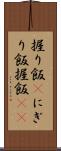 握り飯にぎ
り飯握飯